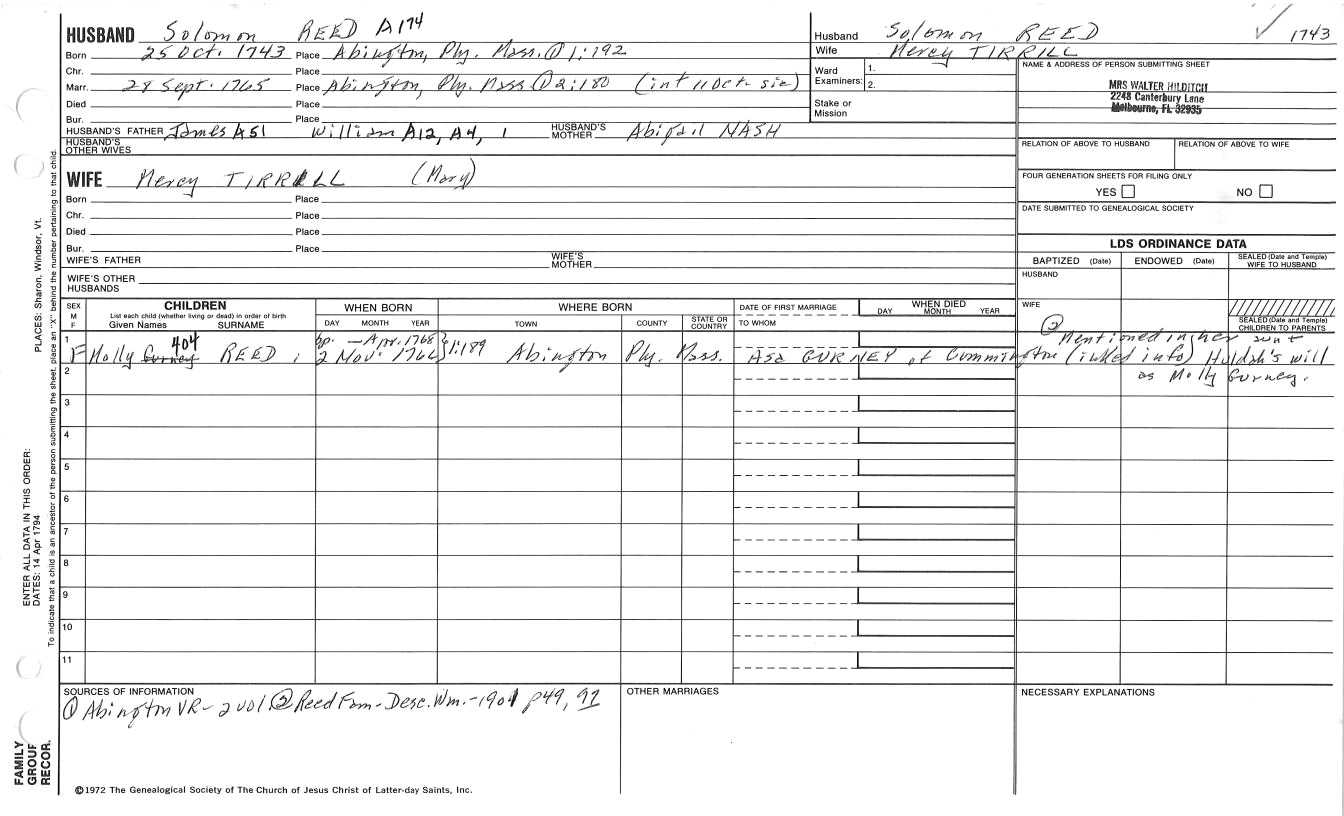 HUSBAND Solomon REED A174
Born 25 Oct. 1743 Place Abington, Ply. Mass. ① 1:192
Chr. Place
Marr. 28 Sept. 1765 Place Abington, Ply. Mass ① 2:180 (int 11 Oct. sic)
Died Place
Bur. Place
HUSBAND'S FATHER James A51 William A12, A4, 1 HUSBAND'S MOTHER Abigail NASH
HUSBAND'S OTHER WIVES
WIFE Mercy TIRRILL (Mary)
Born Place
Chr. Place
Died Place
Bur. Place
WIFE'S FATHER WIFE'S MOTHER
WIFE'S OTHER HUSBANDS
Husband Solomon REED ✓ 1743
Wife Mercy TIRRILL
Ward Examiners: 1.
2.
Stake or Mission
NAME & ADDRESS OF PERSON SUBMITTING SHEET
MRS WALTER HILDITCH
2248 Canterbury Lane
Melbourne, FL 32935
RELATION OF ABOVE TO HUSBAND RELATION OF ABOVE TO WIFE
FOUR GENERATION SHEETS FOR FILING ONLY
YES NO
DATE SUBMITTED TO GENEALOGICAL SOCIETY
LDS ORDINANCE DATA
BAPTIZED (Date) ENDOWED (Date) SEALED (Date and Temple) WIFE TO HUSBAND
HUSBAND
WIFE
SEALED (Date and Temple) CHILDREN TO PARENTS
SEX M F
CHILDREN
List each child (whether living or dead) in order of birth
Given Names SURNAME
WHEN BORN
DAY MONTH YEAR
WHERE BORN
TOWN COUNTY STATE OR COUNTRY
DATE OF FIRST MARRIAGE
TO WHOM
WHEN DIED
DAY MONTH YEAR
404 bp. — Apr. 1768 ② Mentioned in her aunt
1 F Molly Gurney REED, 2 Nov. 1766 } 1:189 Abington Ply. Mass. Asa GURNEY of Cummington (inked info) Huldah's will
as Molly Gurney.
2
3
4
5
6
7
8
9
10
11
SOURCES OF INFORMATION
① Abington VR - 2 vol ② Reed Fam - Desc. Wm. - 1901 p49, 92
OTHER MARRIAGES
NECESSARY EXPLANATIONS
©1972 The Genealogical Society of The Church of Jesus Christ of Latter-day Saints, Inc.
PLACES: Sharon, Windsor, Vt.
ENTER ALL DATA IN THIS ORDER:
DATES: 14 Apr 1794
To indicate that a child is an ancestor of the person submitting the sheet, place an "X" behind the number pertaining to that child.
FAMILY
GROUP
RECOR.